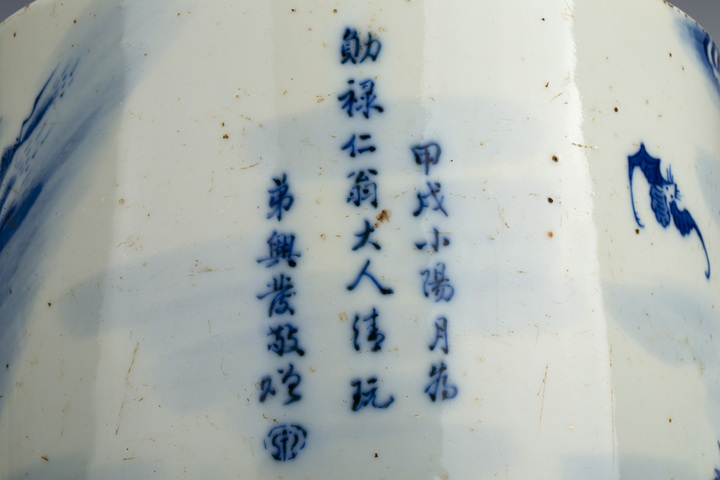 甲戌小陽月為
勛祿仁翁大人清玩
弟興發敬贈